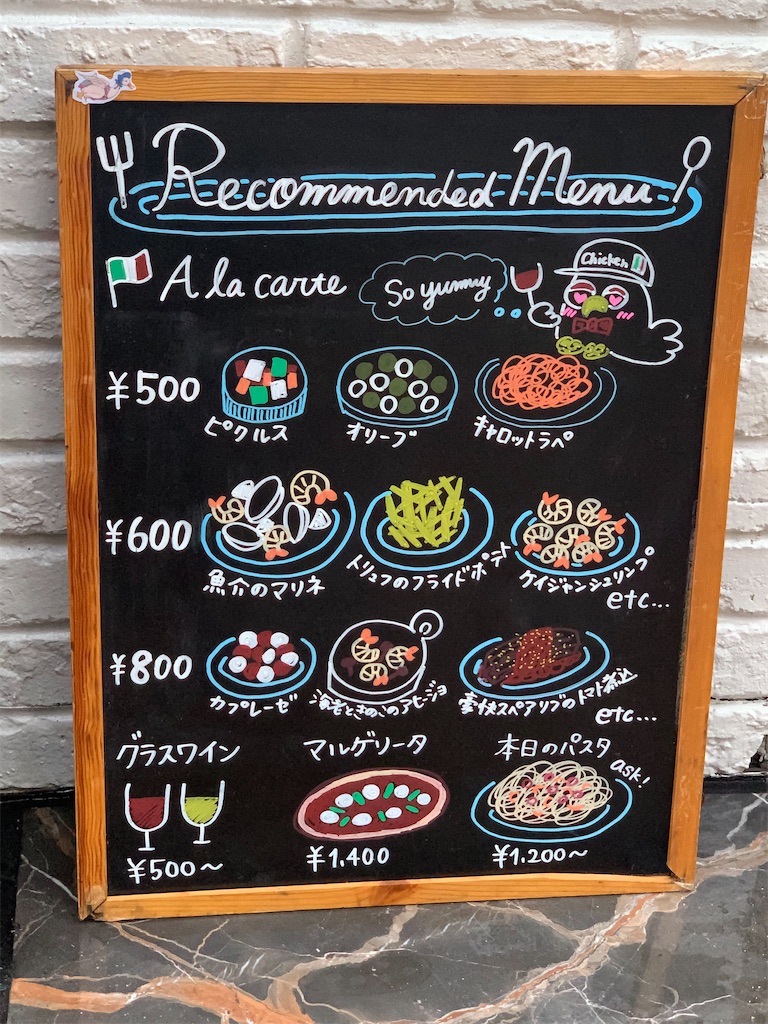 Recommended Menu
A la carte
So yummy
Chicken
¥500
ピクルス
オリーブ
キャロットラペ
¥600
魚介のマリネ
トリュフのフライドポテト
ケイジャンシュリンプ
etc...
¥800
カプレーゼ
海老ときのこのアヒージョ
豪快スペアリブのトマト煮込
etc...
グラスワイン
マルゲリータ
本日のパスタ
ask!
¥500〜
¥1.400
¥1.200〜